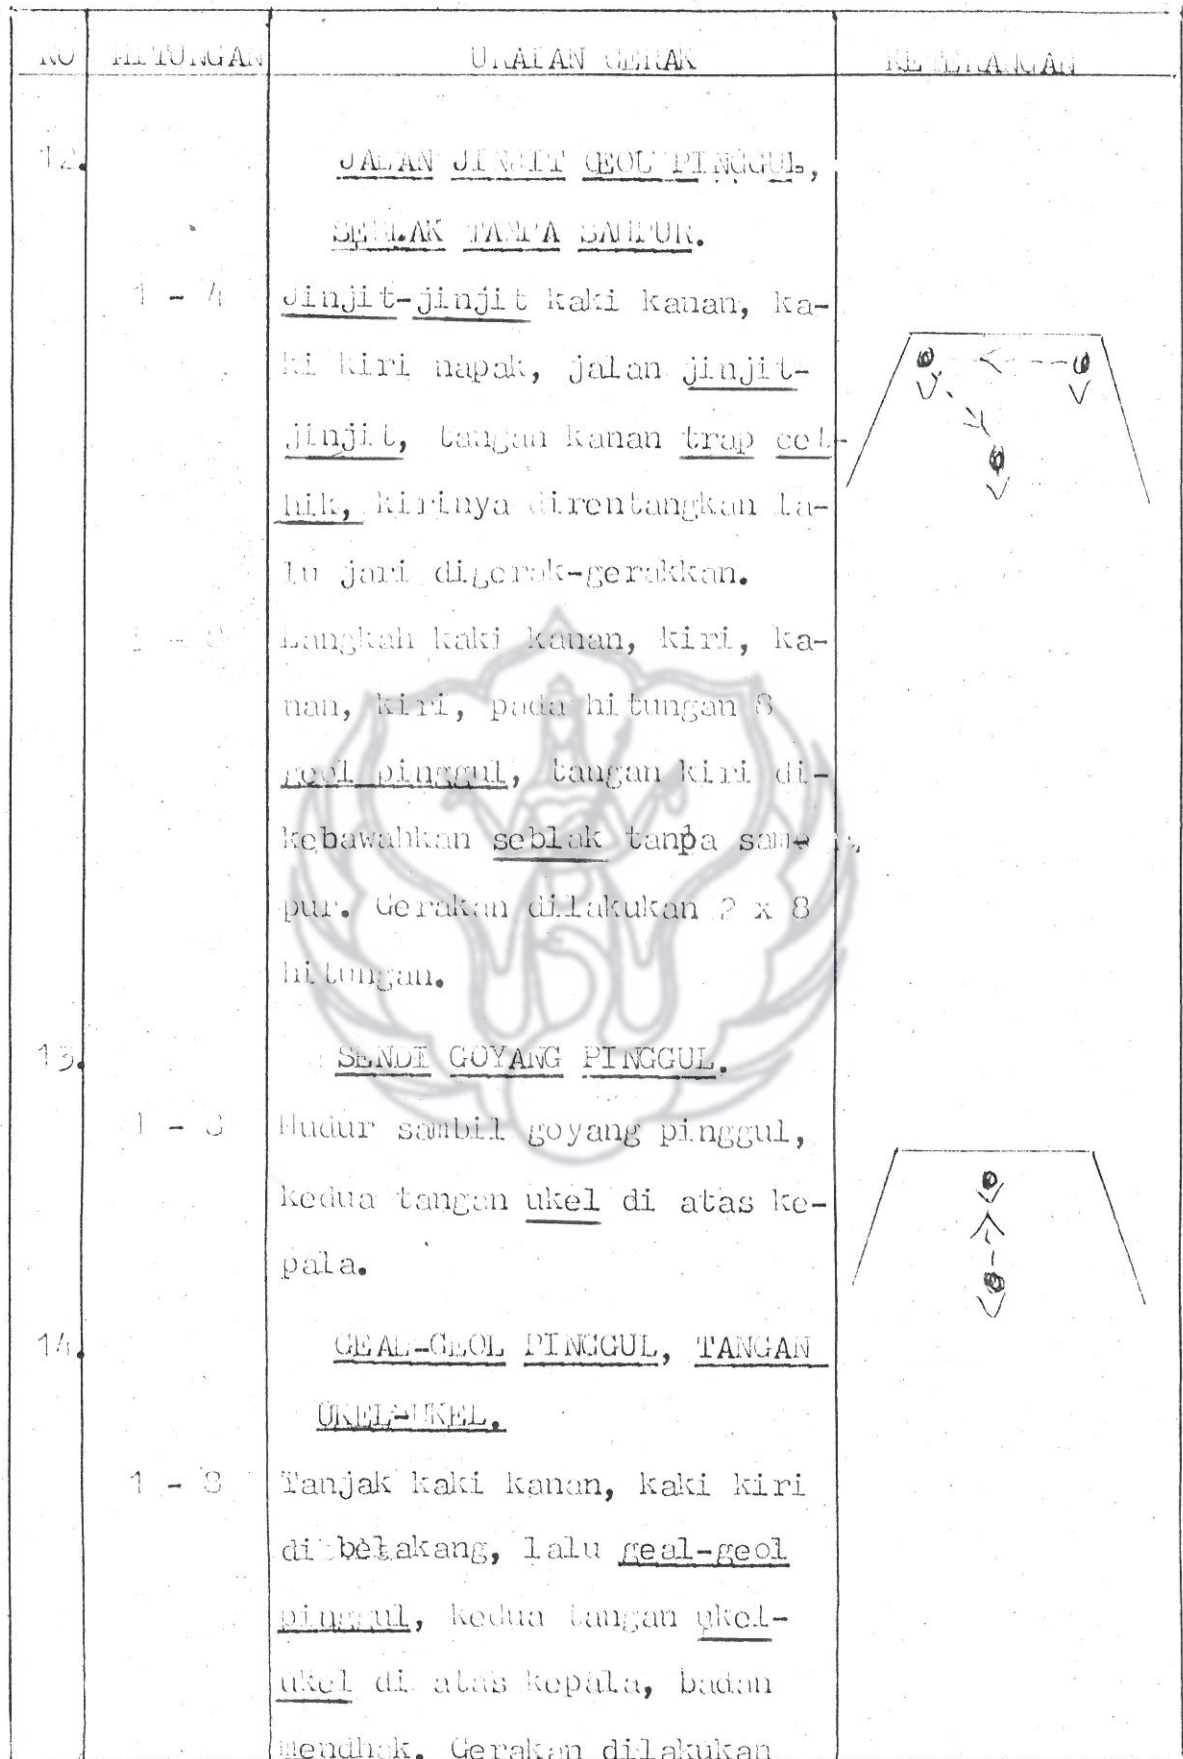 NO HITUNGAN URAIAN GERAK KETERANGAN
12. JALAN JINJIT GEOL PINGGUL,
SEBLAK TANPA SAMPUR.
1 - 4 Jinjit-jinjit kaki kanan, ka-
ki kiri napak, jalan jinjit-
jinjit, tangan kanan trap cet-
hik, kirinya direntangkan la-
lu jari digerak-gerakkan.
Langkah kaki kanan, kiri, ka-
nan, kiri, pada hitungan 8
geol pinggul, tangan kiri di-
kebawahkan seblak tanpa sam-
pur. Gerakan dilakukan 2 x 8
hitungan.
13. SENDI GOYANG PINGGUL.
1 - 8 Mudur sambil goyang pinggul,
kedua tangan ukel di atas ke-
pala.
14. GEAL-GEOL PINGGUL, TANGAN
UKEL-UKEL.
1 - 8 Tanjak kaki kanan, kaki kiri
di belakang, lalu geal-geol
pinggul, kedua tangan ukel-
ukel di atas kepala, badan
mendhak. Gerakan dilakukan